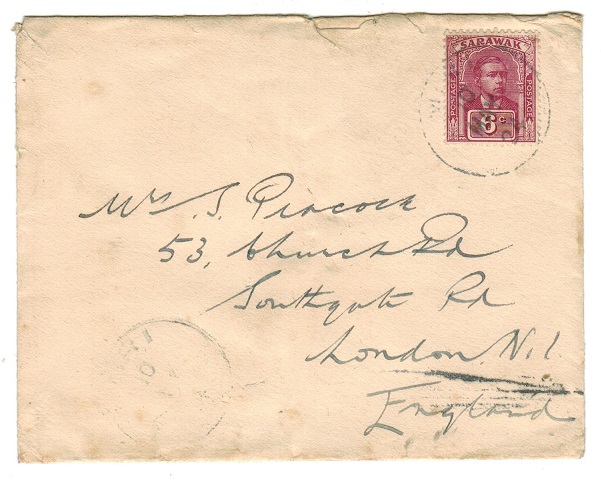 SARAWAK
POSTAGE POSTAGE
6c
Mrs S. Peacock
53, Church Rd
Southgate Rd
London. N.1.
England